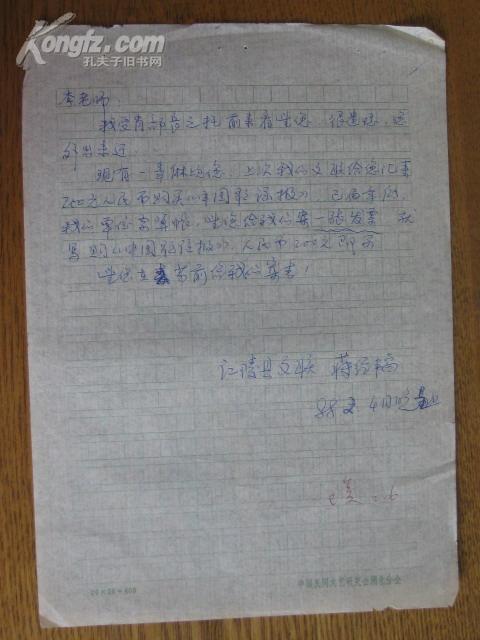 Kongfz.com
孔夫子旧书网
李老师:
我受肖部长之托前来看望您,很遗憾,您
外出未遇.
现有一事麻烦您,上次我们文联给您汇来
200元人民币购买《中国歌谣报》,已届年底,
我们单位等算帐,望您给我们寄一张发票
写购《中国歌谣报》,人民币200元即可
望您在 节前给我们寄来!
江陵县文联 蒋经
88 4月
20×20=400
中国民间文艺研究会湖北分会